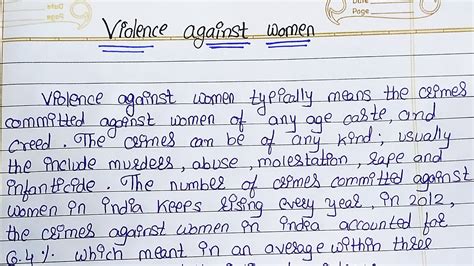 Date
Page
Date
Page
Violence against women
Violence against women typically means the crimes
committed against women of any age caste, and
creed. The crimes can be of any kind; usually
the include murders, abuse, molestation, rape and
infanticide. The number of crimes committed against
women in india keeps rising every year, in 2012,
the crimes against women in india accounted for
6.4% which meant in an average within three